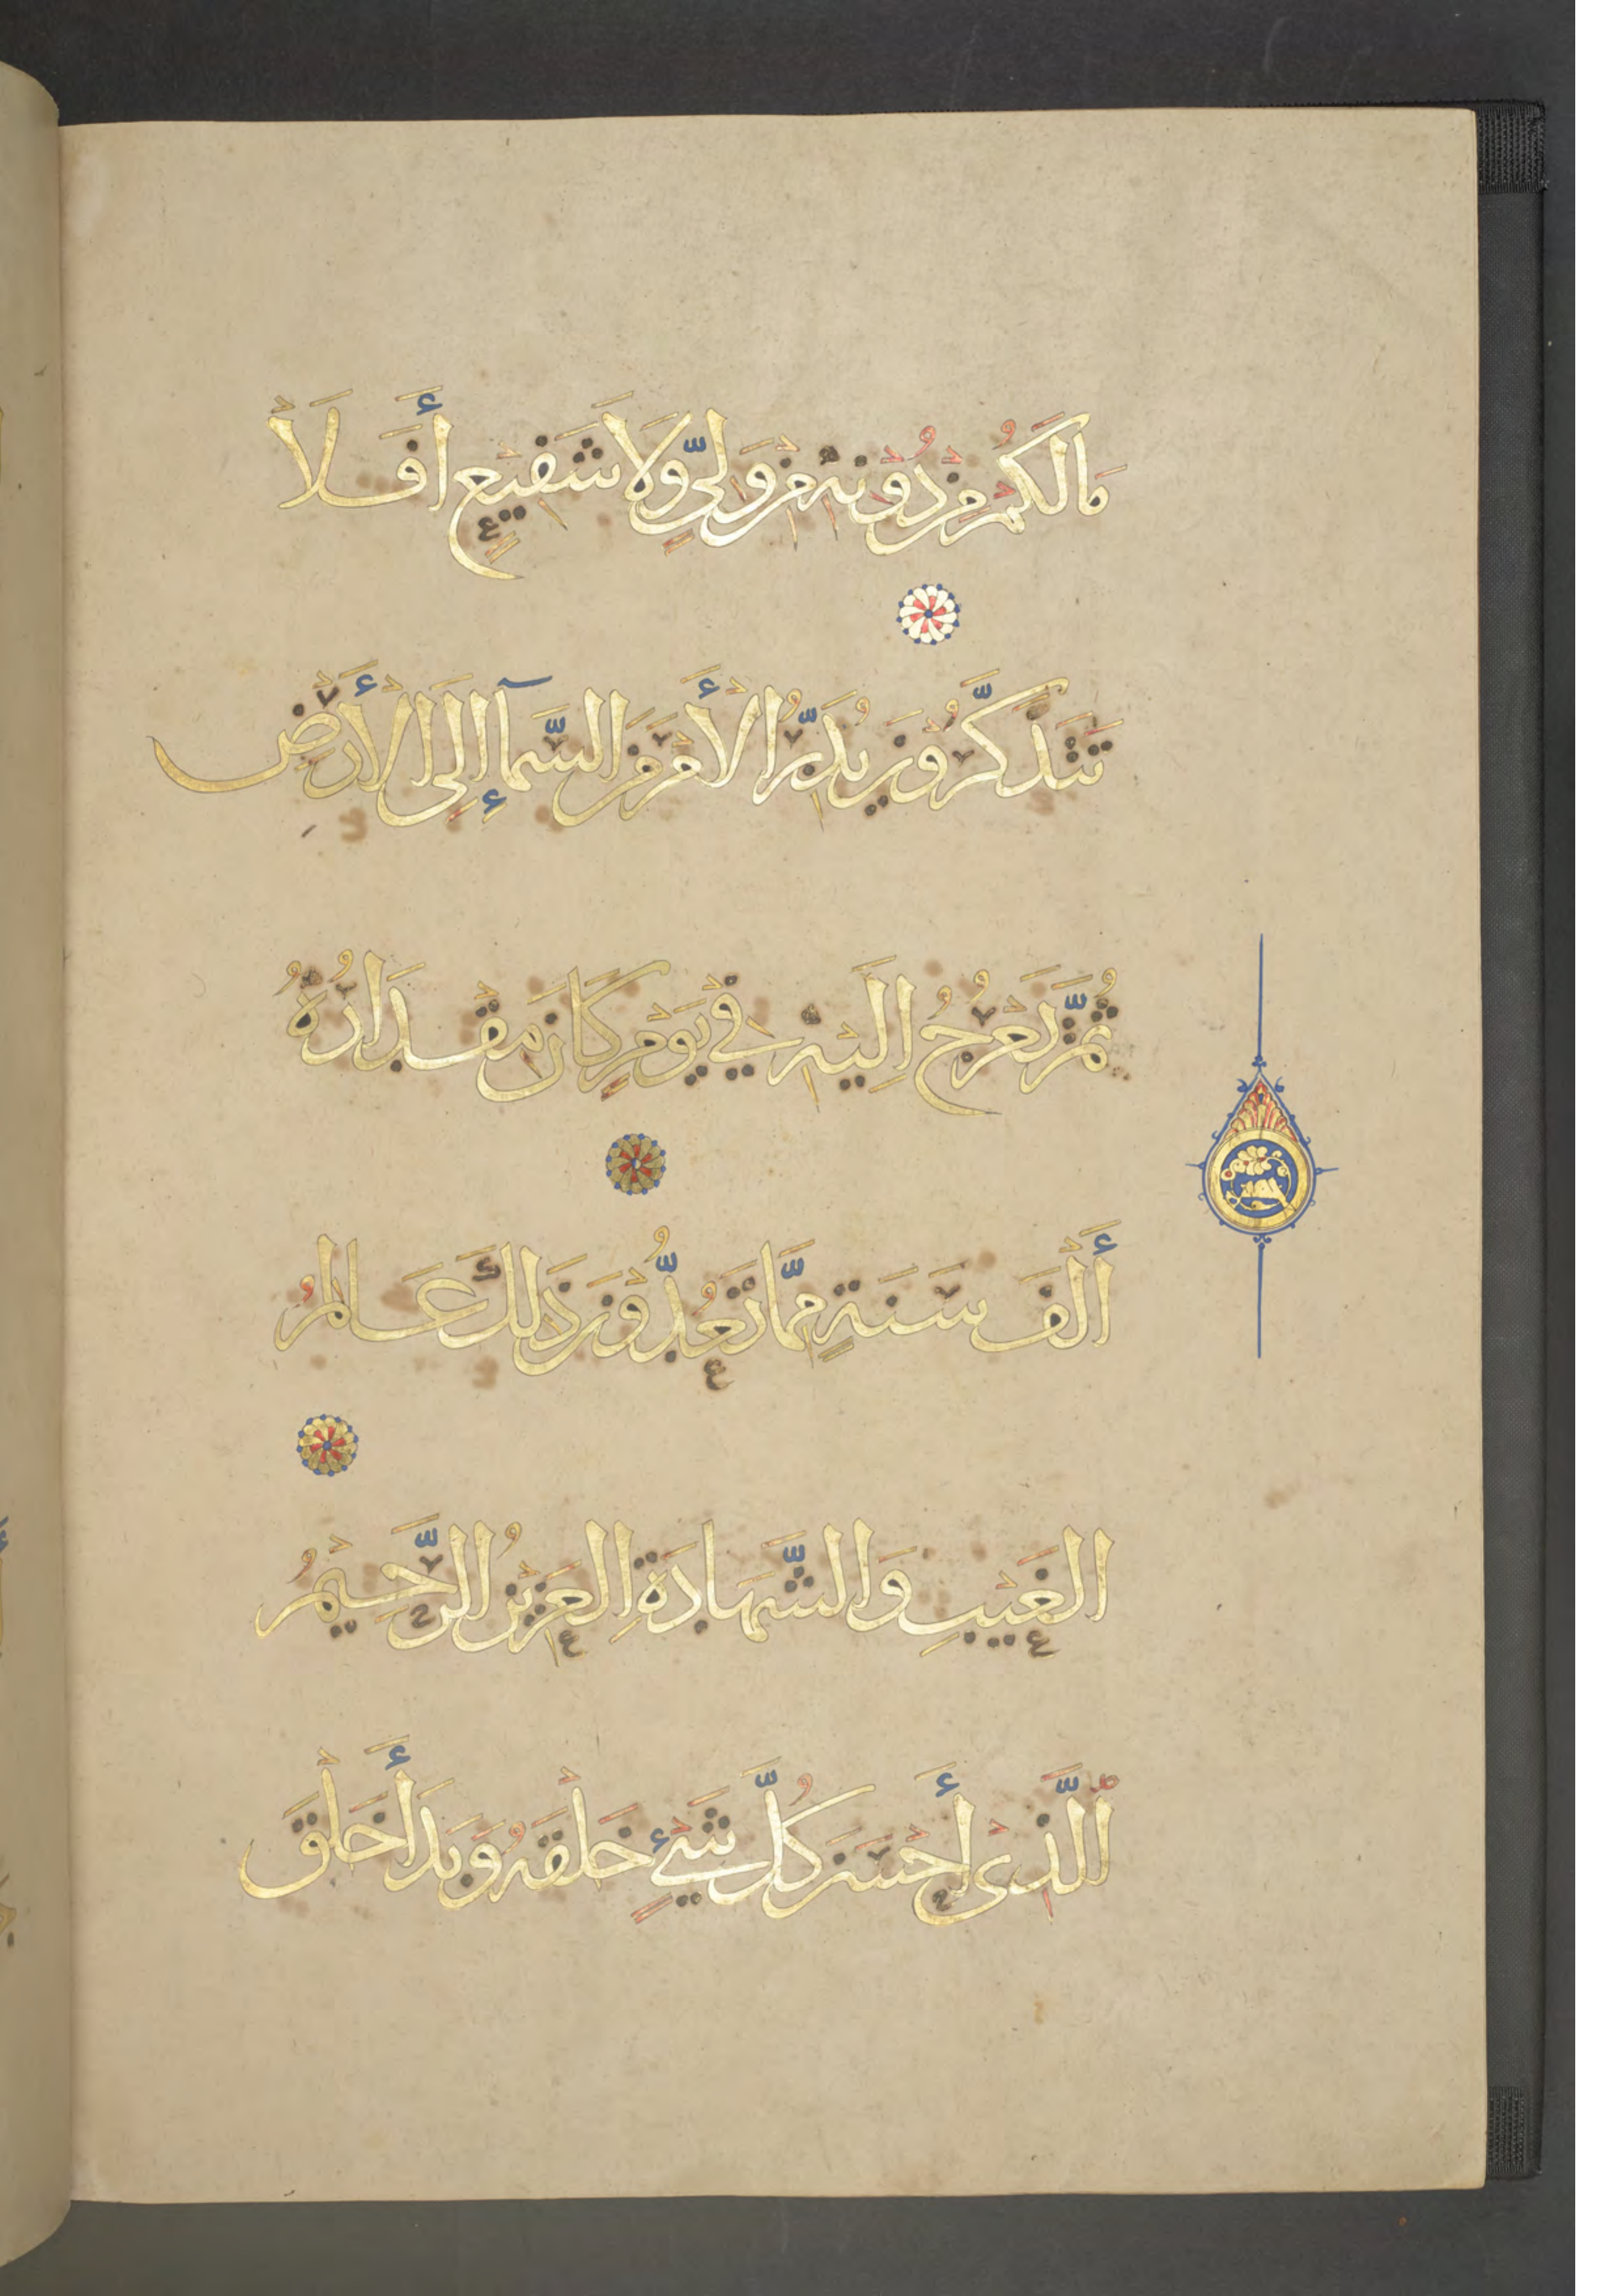 مَالَكُمْ مِنْ دُوْنِهِ مِنْ وَلِيٍّ وَلَا شَفِيْعٍ أَفَلَا
تَتَذَكَّرُوْنَ يُدَبِّرُ الْأَمْرَ مِنَ السَّمَآءِ إِلَى الْأَرْضِ
ثُمَّ يَعْرُجُ اِلَيْهِ فِيْ يَوْمٍ كَانَ مِقْدَارُهُ
أَلْفَ سَنَةٍ مِمَّا تَعُدُّوْنَ ذَلِكَ عَالِمُ
الْغَيْبِ وَالشَّهَادَةِ الْعَزِيْزُ الرَّحِيْمُ
الَّذِىْ أَحْسَنَ كُلَّ شَيْءٍ خَلْقَهُ وَبَدَأَ خَلْقَ